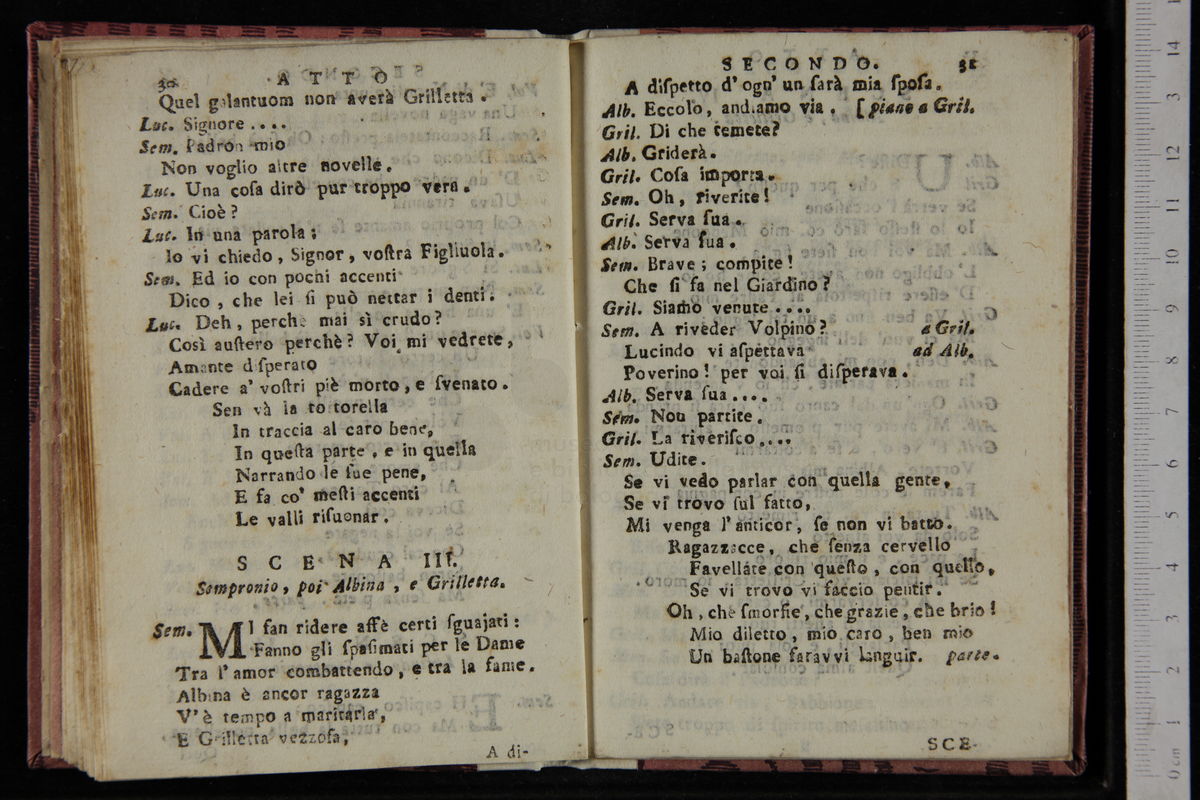 30 ATTO
Quel galantuom non averà Grilletta.
Luc. Signore....
Sem. Padron mio
Non voglio altre novelle.
Luc. Una coſa dirò pur troppo vera.
Sem. Cioè?
Luc. In una parola;
Io vi chiedo, Signor, voſtra Figliuola.
Sem. Ed io con pochi accenti
Dico, che lei ſi può nettar i denti.
Luc. Deh, perchè mai sì crudo?
Così auſtero perchè? Voi mi vedrete,
Amante diſperato
Cadere a' voſtri piè morto, e ſvenato.
Sen và la tortorella
In traccia al caro bene,
In queſta parte, e in quella
Narrando le ſue pene,
E fa co' meſti accenti
Le valli riſuonar.
SCENA III.
Sempronio, poi Albina, e Grilletta.
Sem. MI fan ridere affè certi ſguajati:
Fanno gli ſpaſimati per le Dame
Tra l'amor combattendo, e tra la fame.
Albina è ancor ragazza
V'è tempo a maritarla,
E Grilletta vezzoſa,
A di-
SECONDO. 31
A diſpetto d'ogn'un ſarà mia ſpoſa.
Alb. Eccolo, andiamo via. [piano a Gril.
Gril. Di che temete?
Alb. Griderà.
Gril. Coſa importa.
Sem. Oh, riverite!
Gril. Serva ſua.
Alb. Serva ſua.
Sem. Brave; compite!
Che ſi fa nel Giardino?
Gril. Siamo venute....
Sem. A riveder Volpino? a Gril.
Lucindo vi aſpettava ad Alb.
Poverino! per voi ſi diſperava.
Alb. Serva ſua....
Sem. Non partite.
Gril. La riveriſco....
Sem. Udite.
Se vi vedo parlar con quella gente,
Se vi trovo ſul fatto,
Mi venga l'anticor, ſe non vi batto.
Ragazzacce, che ſenza cervello
Favellate con queſto, con quello,
Se vi trovo vi faccio pentir.
Oh, che ſmorfie, che grazie, che brio!
Mio diletto, mio caro, ben mio
Un baſtone faravvi languir. parte.
SCE-